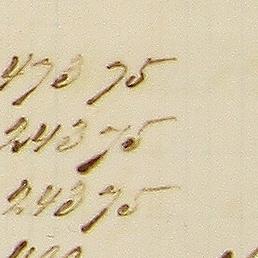 473 75
243 75
243 75